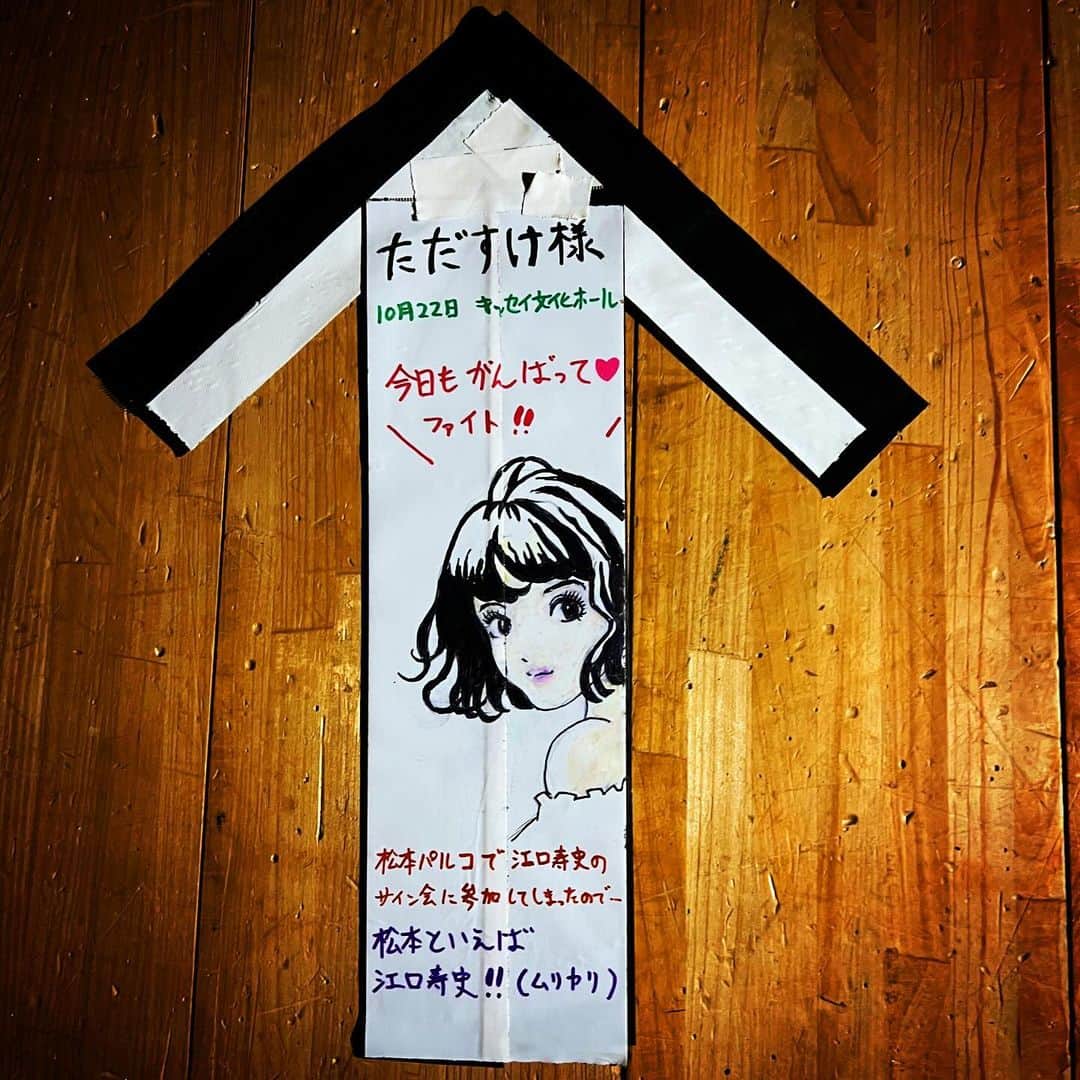 ただすけ様
10月22日 キッセイ文化ホール
今日もがんばって♥
ファイト!!
松本パルコで江口寿史の
サイン会に参加してしまったので…
松本といえば
江口寿史!!(ムリヤリ)